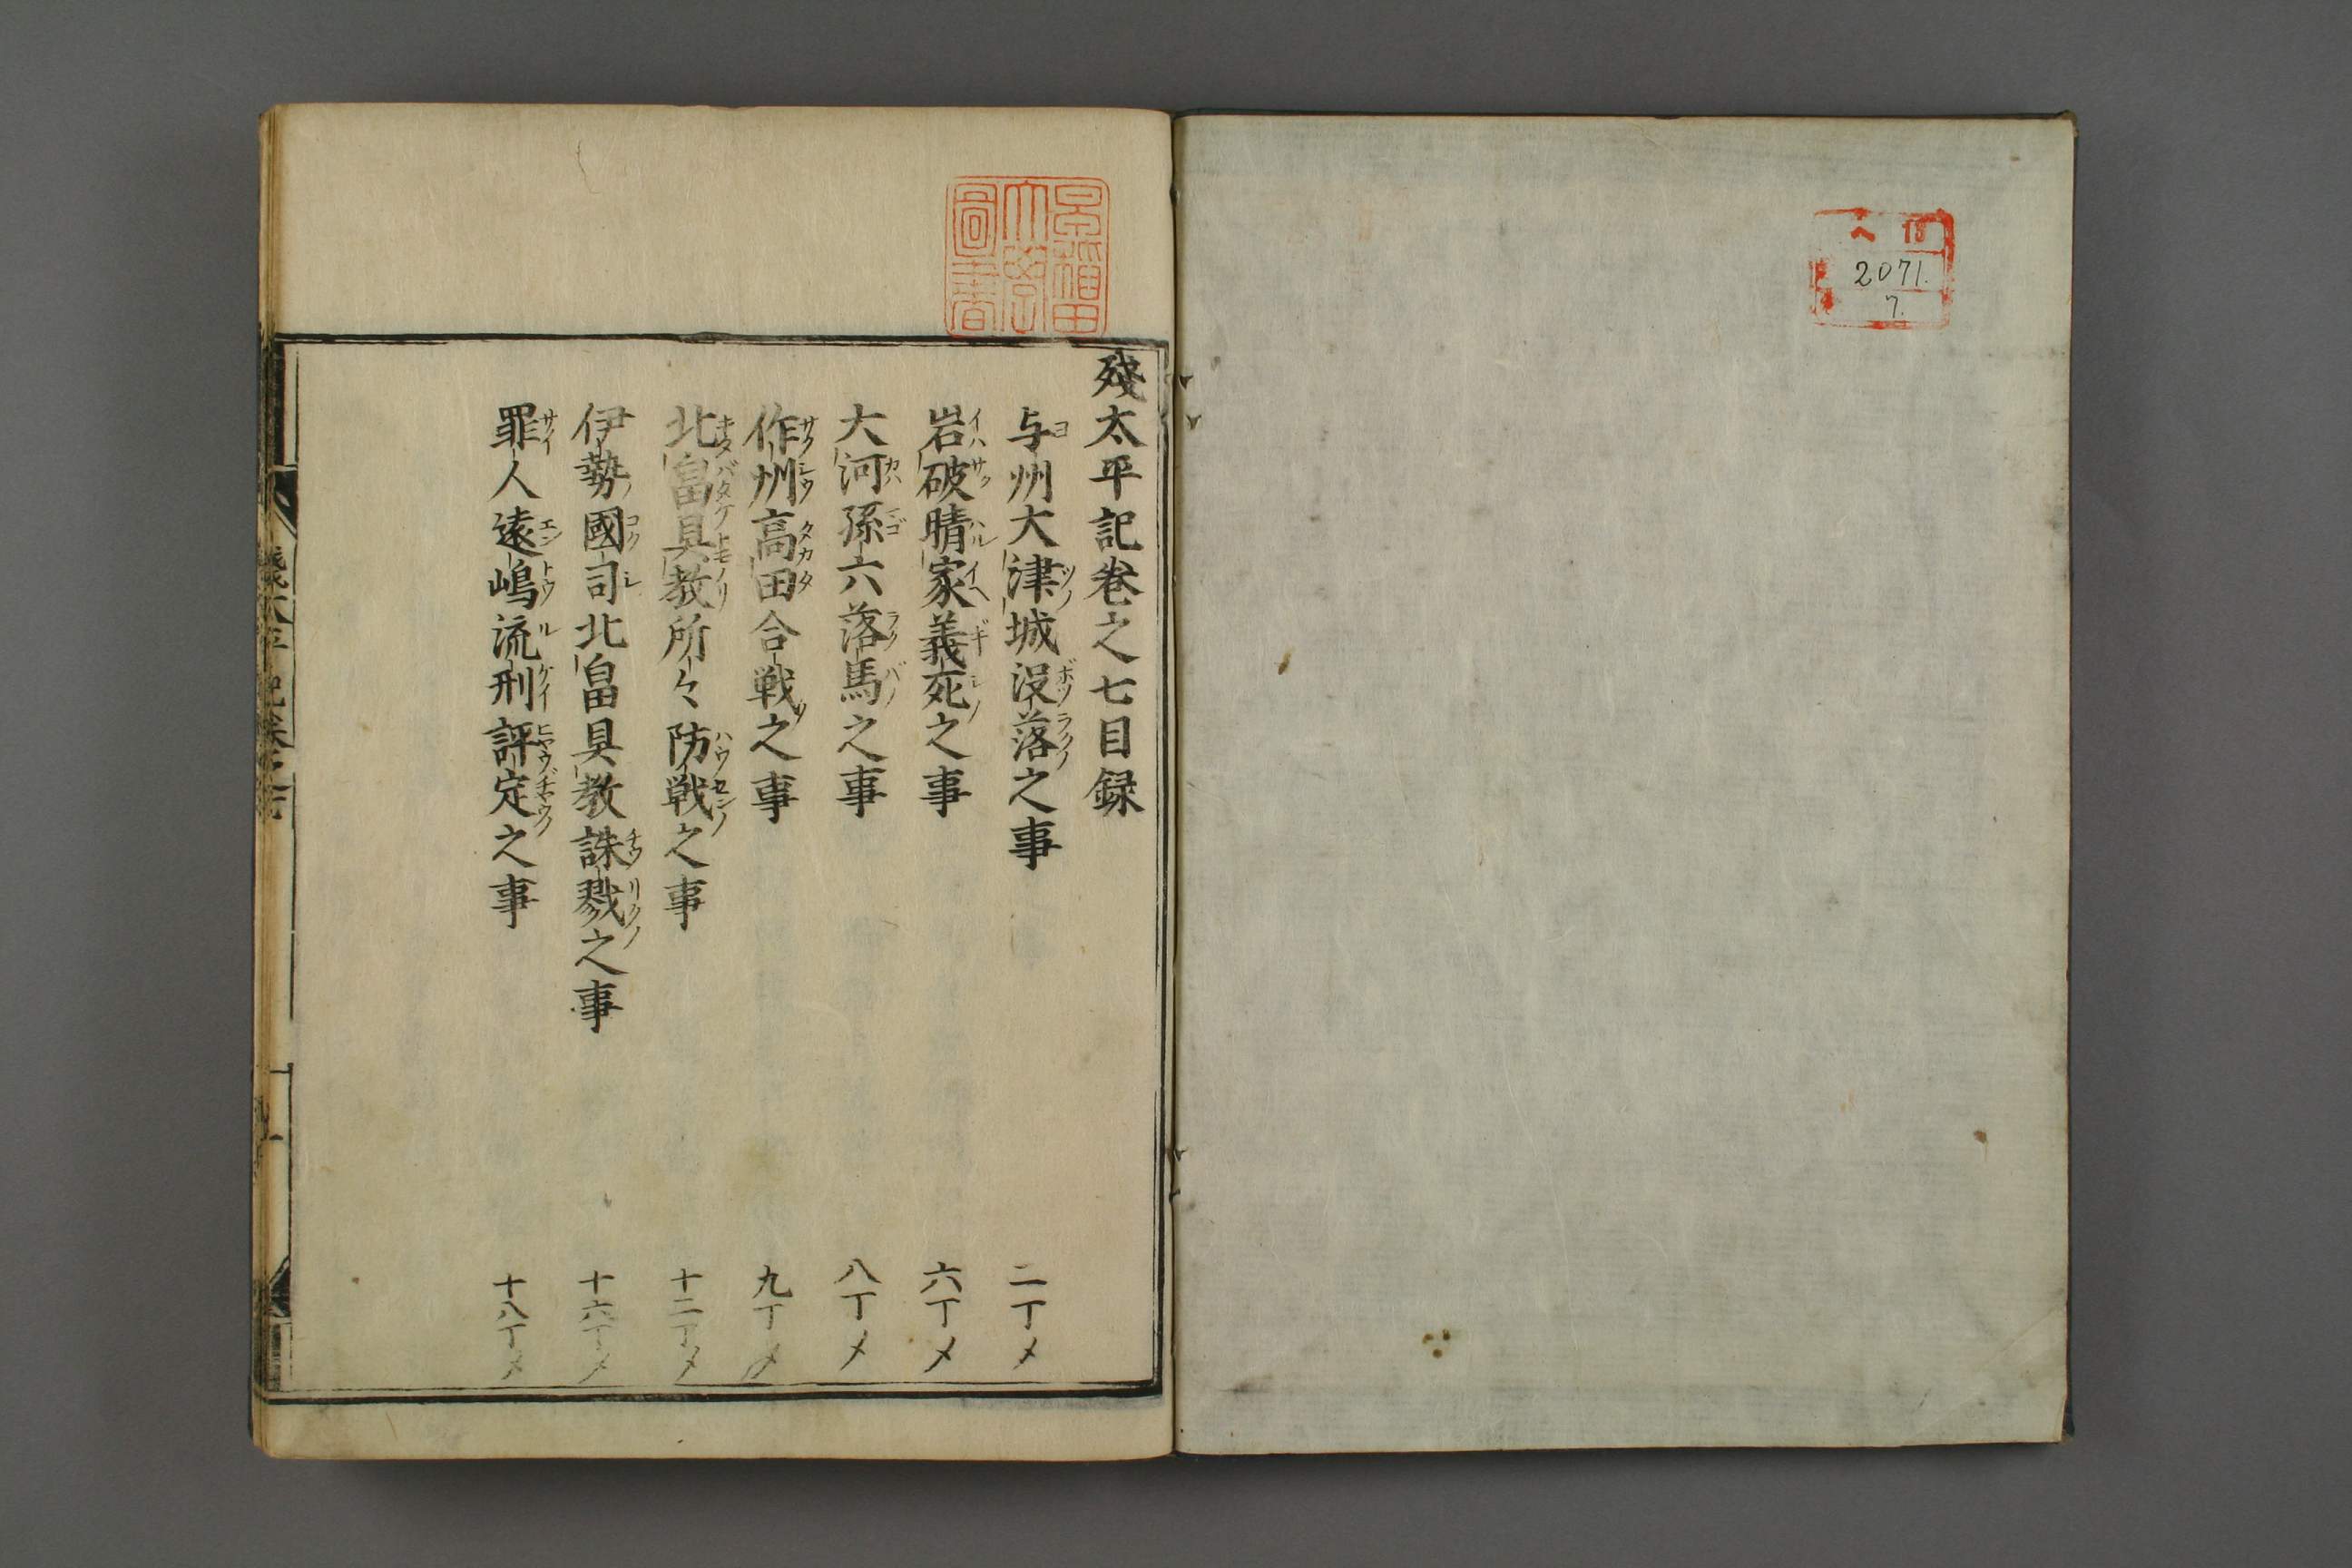 2071.
7.
早稲田
大學
圖書
殘太平記卷之七目録
与州大津城没落之事 二丁メ
岩破晴家義死之事 六丁メ
大河孫六落馬之事 八丁メ
作州高田合戦之事 九丁メ
北畠具教所々防戦之事 十二丁メ
伊勢國司北畠具教誅戮之事 十六丁メ
罪人遠嶋流刑評定之事 十八丁メ